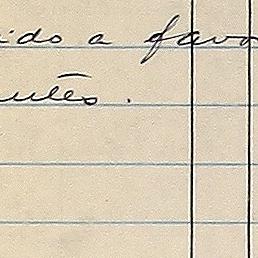 ido a favo
utes.